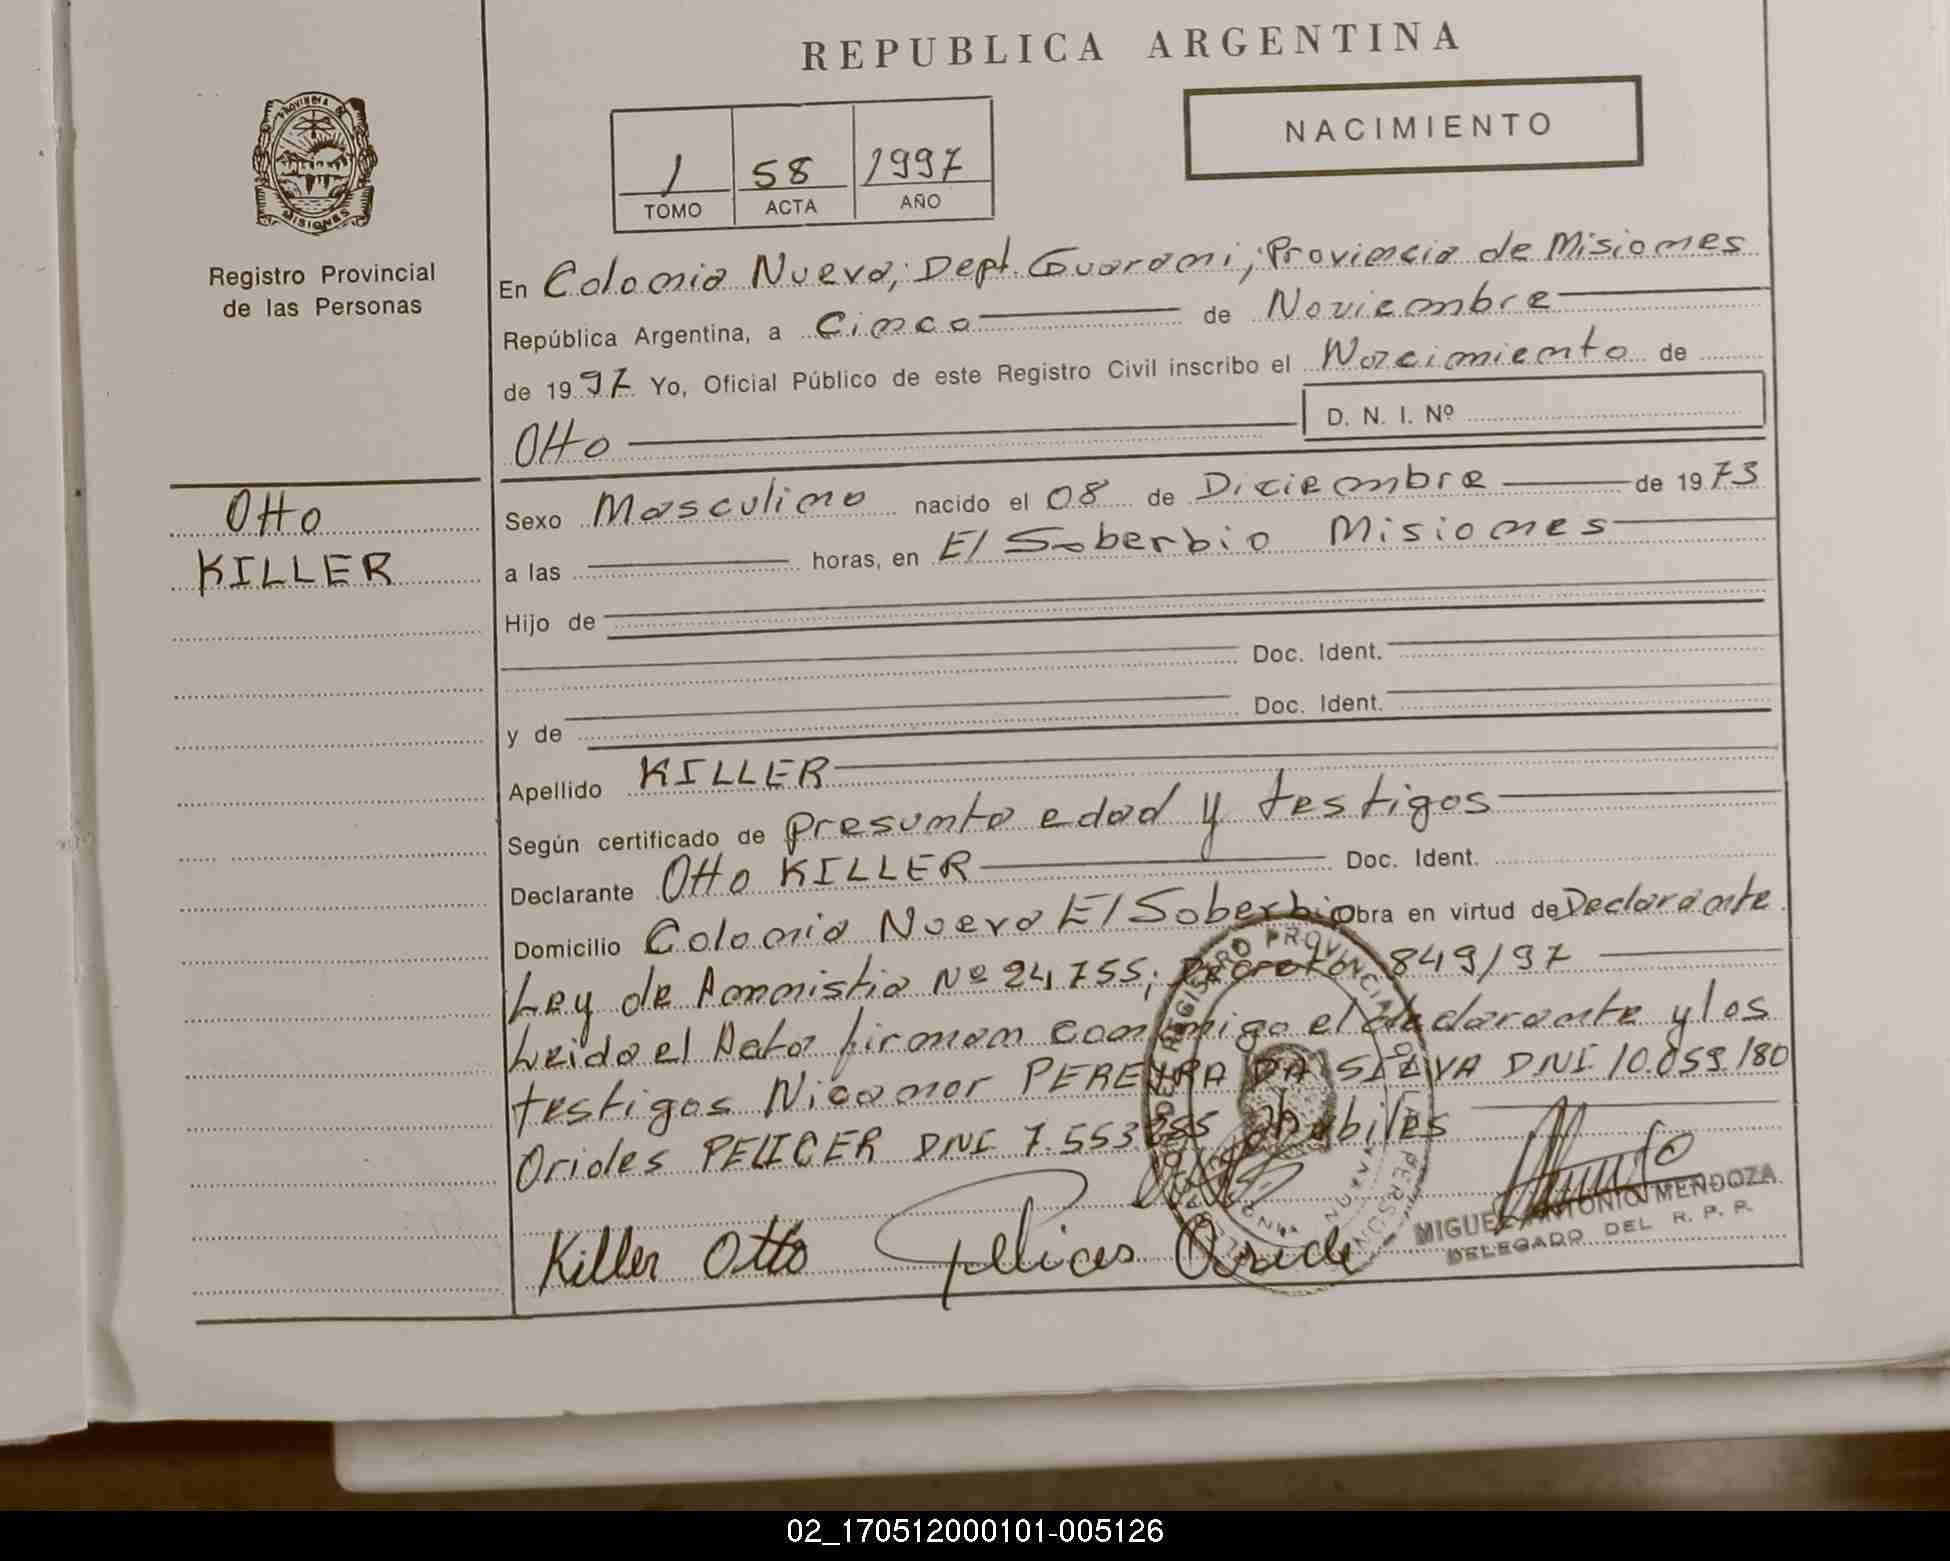 REPUBLICA ARGENTINA
NACIMIENTO
1 58 1997
TOMO ACTA AÑO
PROVINCIA DE
MISIONES
Registro Provincial
de las Personas
Otto
KILLER
En Colonia Nueva; Dept. Guarani; Provincia de Misiones
República Argentina, a Cinco de Noviembre
de 1997 Yo, Oficial Público de este Registro Civil inscribo el Nacimiento de
Otto D. N. I. Nº
Sexo Masculino nacido el 08 de Diciembre de 1973
a las horas, en El Soberbio Misiones
Hijo de
Doc. Ident.
y de Doc. Ident.
Apellido KILLER
Según certificado de presunta edad y testigos
Declarante Otto KILLER Doc. Ident.
Domicilio Colonia Nueva El Soberbio Obra en virtud de Declarante
Ley de Amnistia Nº 24,755; Decreto 849/97
Leida el Acta firman conmigo el declarante y los
testigos Nicanor PEREYRA DA SILVA DNI 10.059.180
Orides PELICER DNI 7.553 habiles
Killer Otto Pelicer Oride
MIGUEL ANTONIO MENDOZA
DELEGADO DEL R. P. P.
02_170512000101-005126